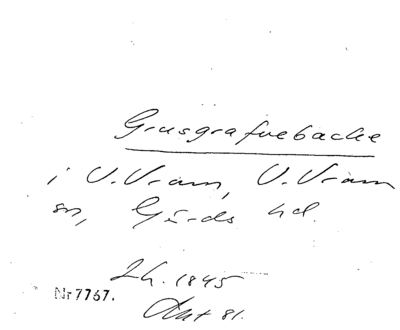 Grusgrafvebacke
i V. Vram, V. Vram
sn, Gärds hd.
Lh. 1845
Nr 7767.
Akt 81.